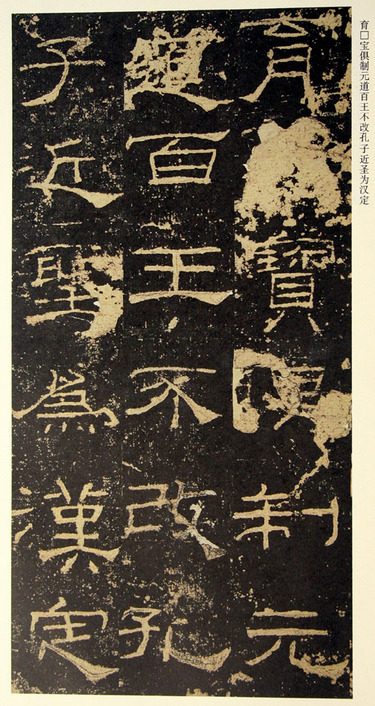 育□宝俱制元道百王不改孔子近圣为汉定
育寶俱制元
道百王不改孔
子近聖為漢定